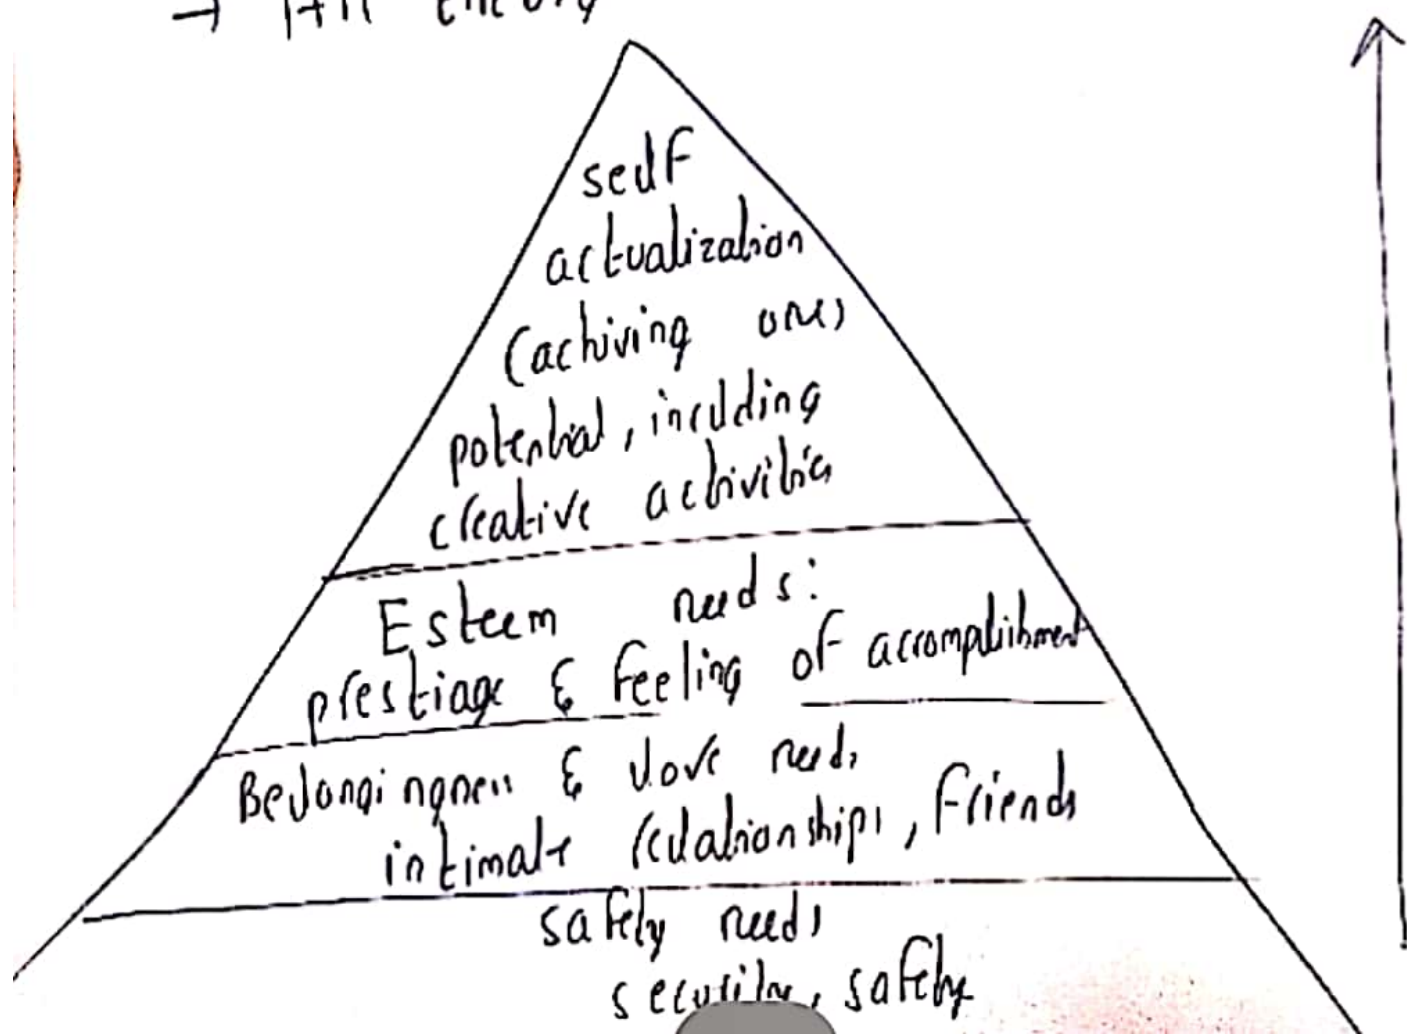 → theory
self
actualization
(achiving ones
potential, inculding
creative activities
Esteem needs:
prestiage & feeling of accomplishment
Belongingness & love needs
intimate relationships, friends
safety needs
security, safety